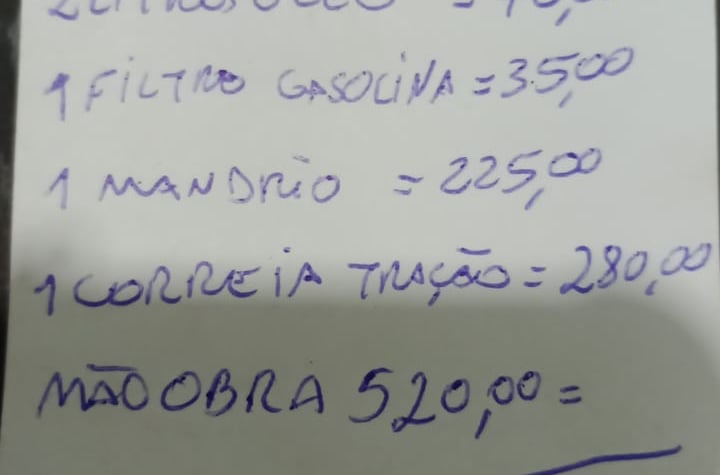 1 FILTRO GASOLINA = 35,00
1 MANDRIO = 225,00
1 CORREIA TRAÇÃO = 280,00
MÃO OBRA 520,00 =